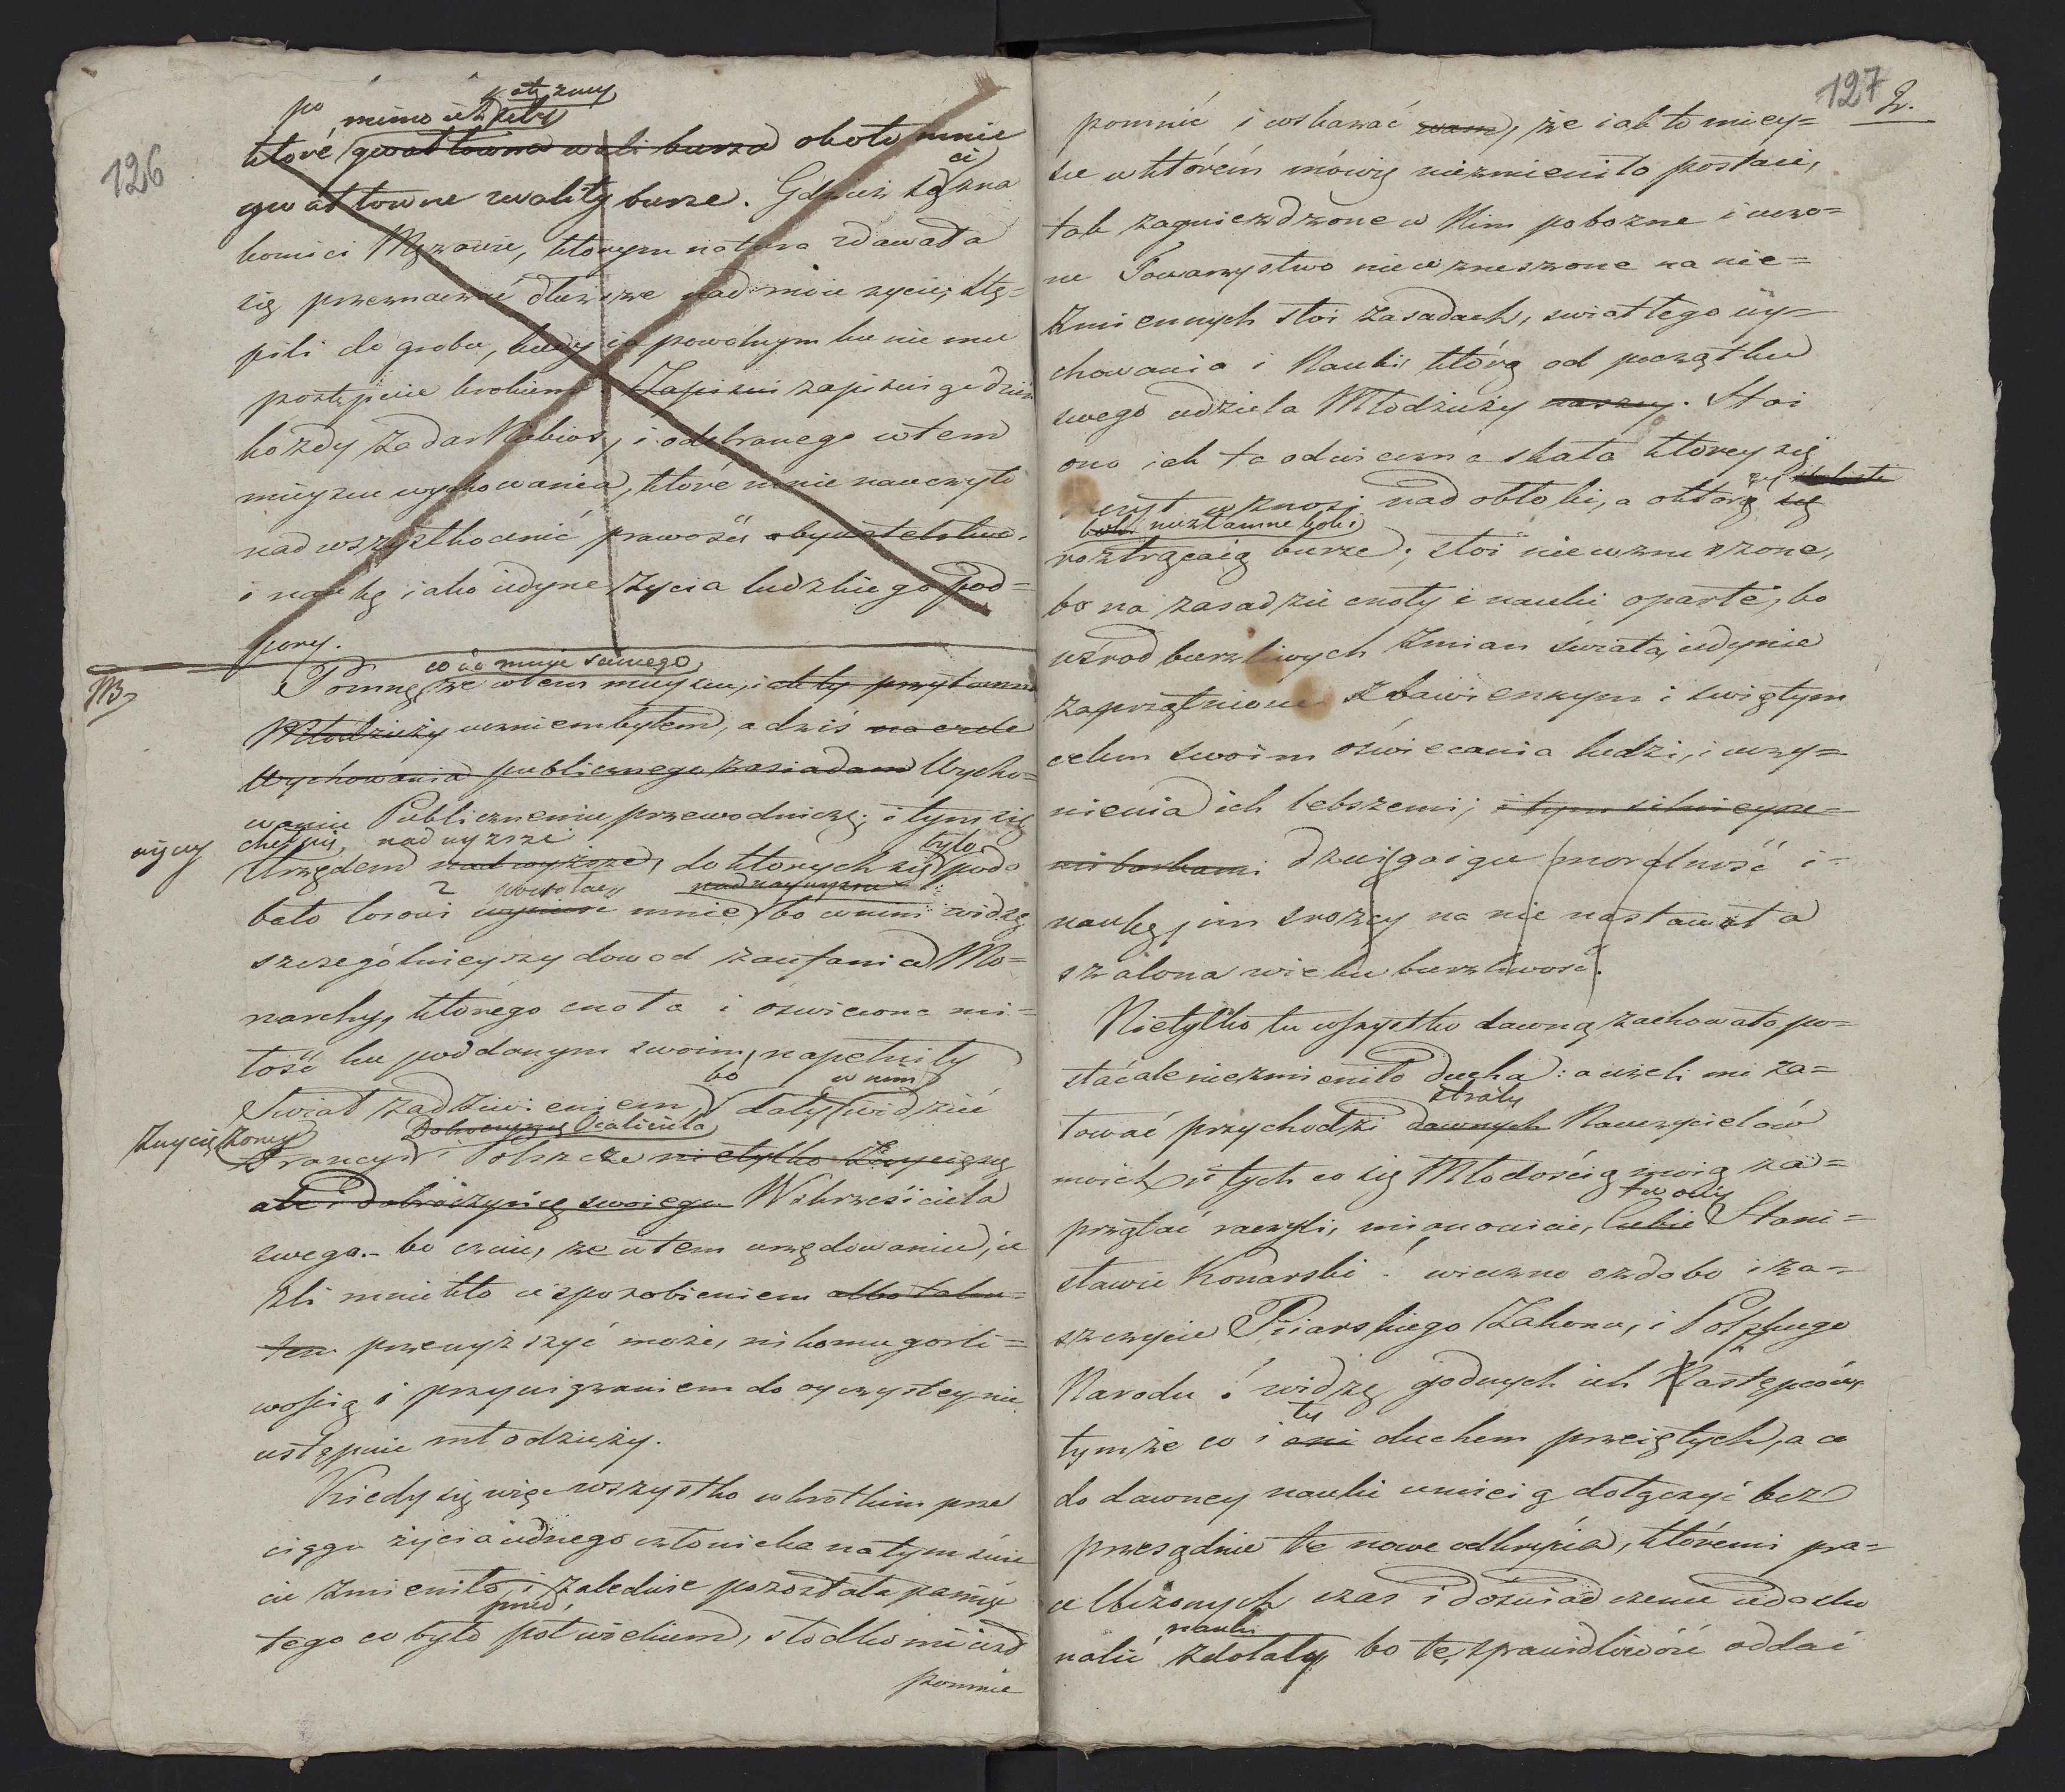 126
po mimo ich potężney
które gwałtowna wali burza około mnie
gwałtowne zwality burze. Gdzież są ci zna
komici Mężowie, ktorym natura zdawała
się przeznaczać dłuższe nad moie życie; stą=
pili do grobu, kiedy ia powolnym ku niemu
postępuie krokiem. Zapisui zapisui go dzień
każdy za dar Niebios, i odebranego w tem
mieyscu wychowania, które mnie nauczyło
nad wszystko cenić prawość obywatelstwo.
i naukę iako iedyne życia ludzkiego pod=
pory.
NB
co do mnie samego
Pomnę że w tem mieyscu, i
Młodzieży uczniem byłem, a dziś na czele
Wychowania publicznego zasiadam Wycho=
waniu Publicznemu przewodniczę; i tym się
chełpię, nad wyższe
Urzędem nad wyższe, do ktorych się tylo podo
bało losowi wynieść mnie bo w nim widzę
szczególnieyszy dowod zaufania Mo=
narchy, którego cnota i oświecona mi=
łość ku poddanym swoim, napełniły
bo w nim
Swiat zadziwieniem, dały widzieć
Zwyciężoney
Francyi i Polszcze nietylko Zwycięzcę
ale i dobroczyńcę swoiego Wskrzesiciela
swego.- bo czuie, że w tem urzędowaniu, ie
żli mnie kto usposobieniem albo talen=
tem przewyższyć może, nikomu gorli=
wością i przywiązaniem do oyczystey nie
ustępuie młodzieży.
Kiedy się więc wszystko w krotkim prze
ciągu życia iednego człowieka na tym świe
cie zmieniło, i zaledwie pozostała pamięć
przed
tego co było poł wiekiem, słodko mi iest
pomnie
127 2.
pomnić i wskazać wam, że iak to miey=
sce w którém mówię niezmieniło postaci,
tak zagnieżdżone w Nim pobożne i uczo=
ne Towarzystwo niewzruszone na nie=
zmiennych stoi zasadach, swiatłego wy=
chowania i Nauki którą od początku
swego udziela Młodzieży naszey. Stoi
ono iak ta odwieczna skała ktorey się
szczyt wznosi nad obłoki, a o którą się
niezłamne boki
roztrącaią burze; stoi niewzruszone,
bo na zasadzie cnoty i nauki oparte, bo
wśrod burzliwych zmian świata, iedynie
zaprzątnione zbawiennym i swiętym
celem swoim oświecania ludzi, i uczy=
nienia ich lebszemi; i tym silnieysze=
mi barkami dzwigaiące moralność i=
naukę, im srożey na nie nastawała
szalona wieku burzliwość.
Nietylko tu wszystko dawną zachowało po=
stać ale niezmieniło ducha: a ieżeli mi ża=
straty
łować przychodzi dawnych Nauczycielów
moich i tych co się Młodością moią za=
twoiey
przątać raczyli, mianowicie, Ciebie Stani=
sławie Konarski! wieczna ozdobo i za=
szczycie Piiarskiego Zakonu, i Polskiego
Narodu! widzę godnych ich Następców
ty
tymże co i oni duchem przeiętych, a co
do dawney nauki umieią dołączyć bez
przesądnie te nowe odkrycia, któremi pra=
ce Uczonych czas i doświadczenie udosko
nauki
nalić zdołały bo tę sprawiedliwość oddać